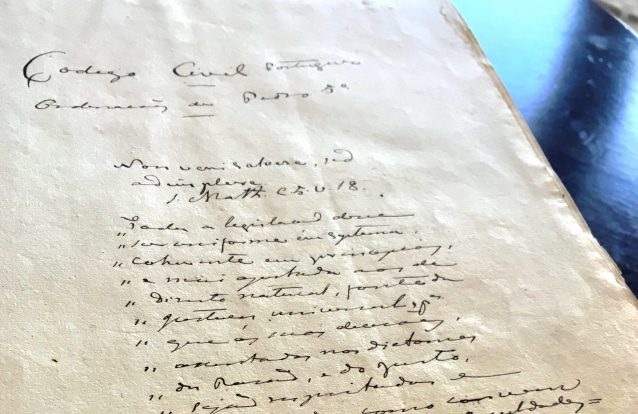 Codigo Civil Portuguez
Ordenações de Pedro 5º
Non veni solvere, sed
adimplere
S. Math. C 5. v. 18.
„ Toda a legislacaõ deve
„ ser uniforme em systema,
„ coherente em principios,
„ e mui ajustada aos de
„ Direito natural, fonte da
„ justiça universal,
„ que as suas decisoes,
„ assentadas nos dictames
„ da Razaõ, e do Justo,
„ sejaõ respeitadas e
como